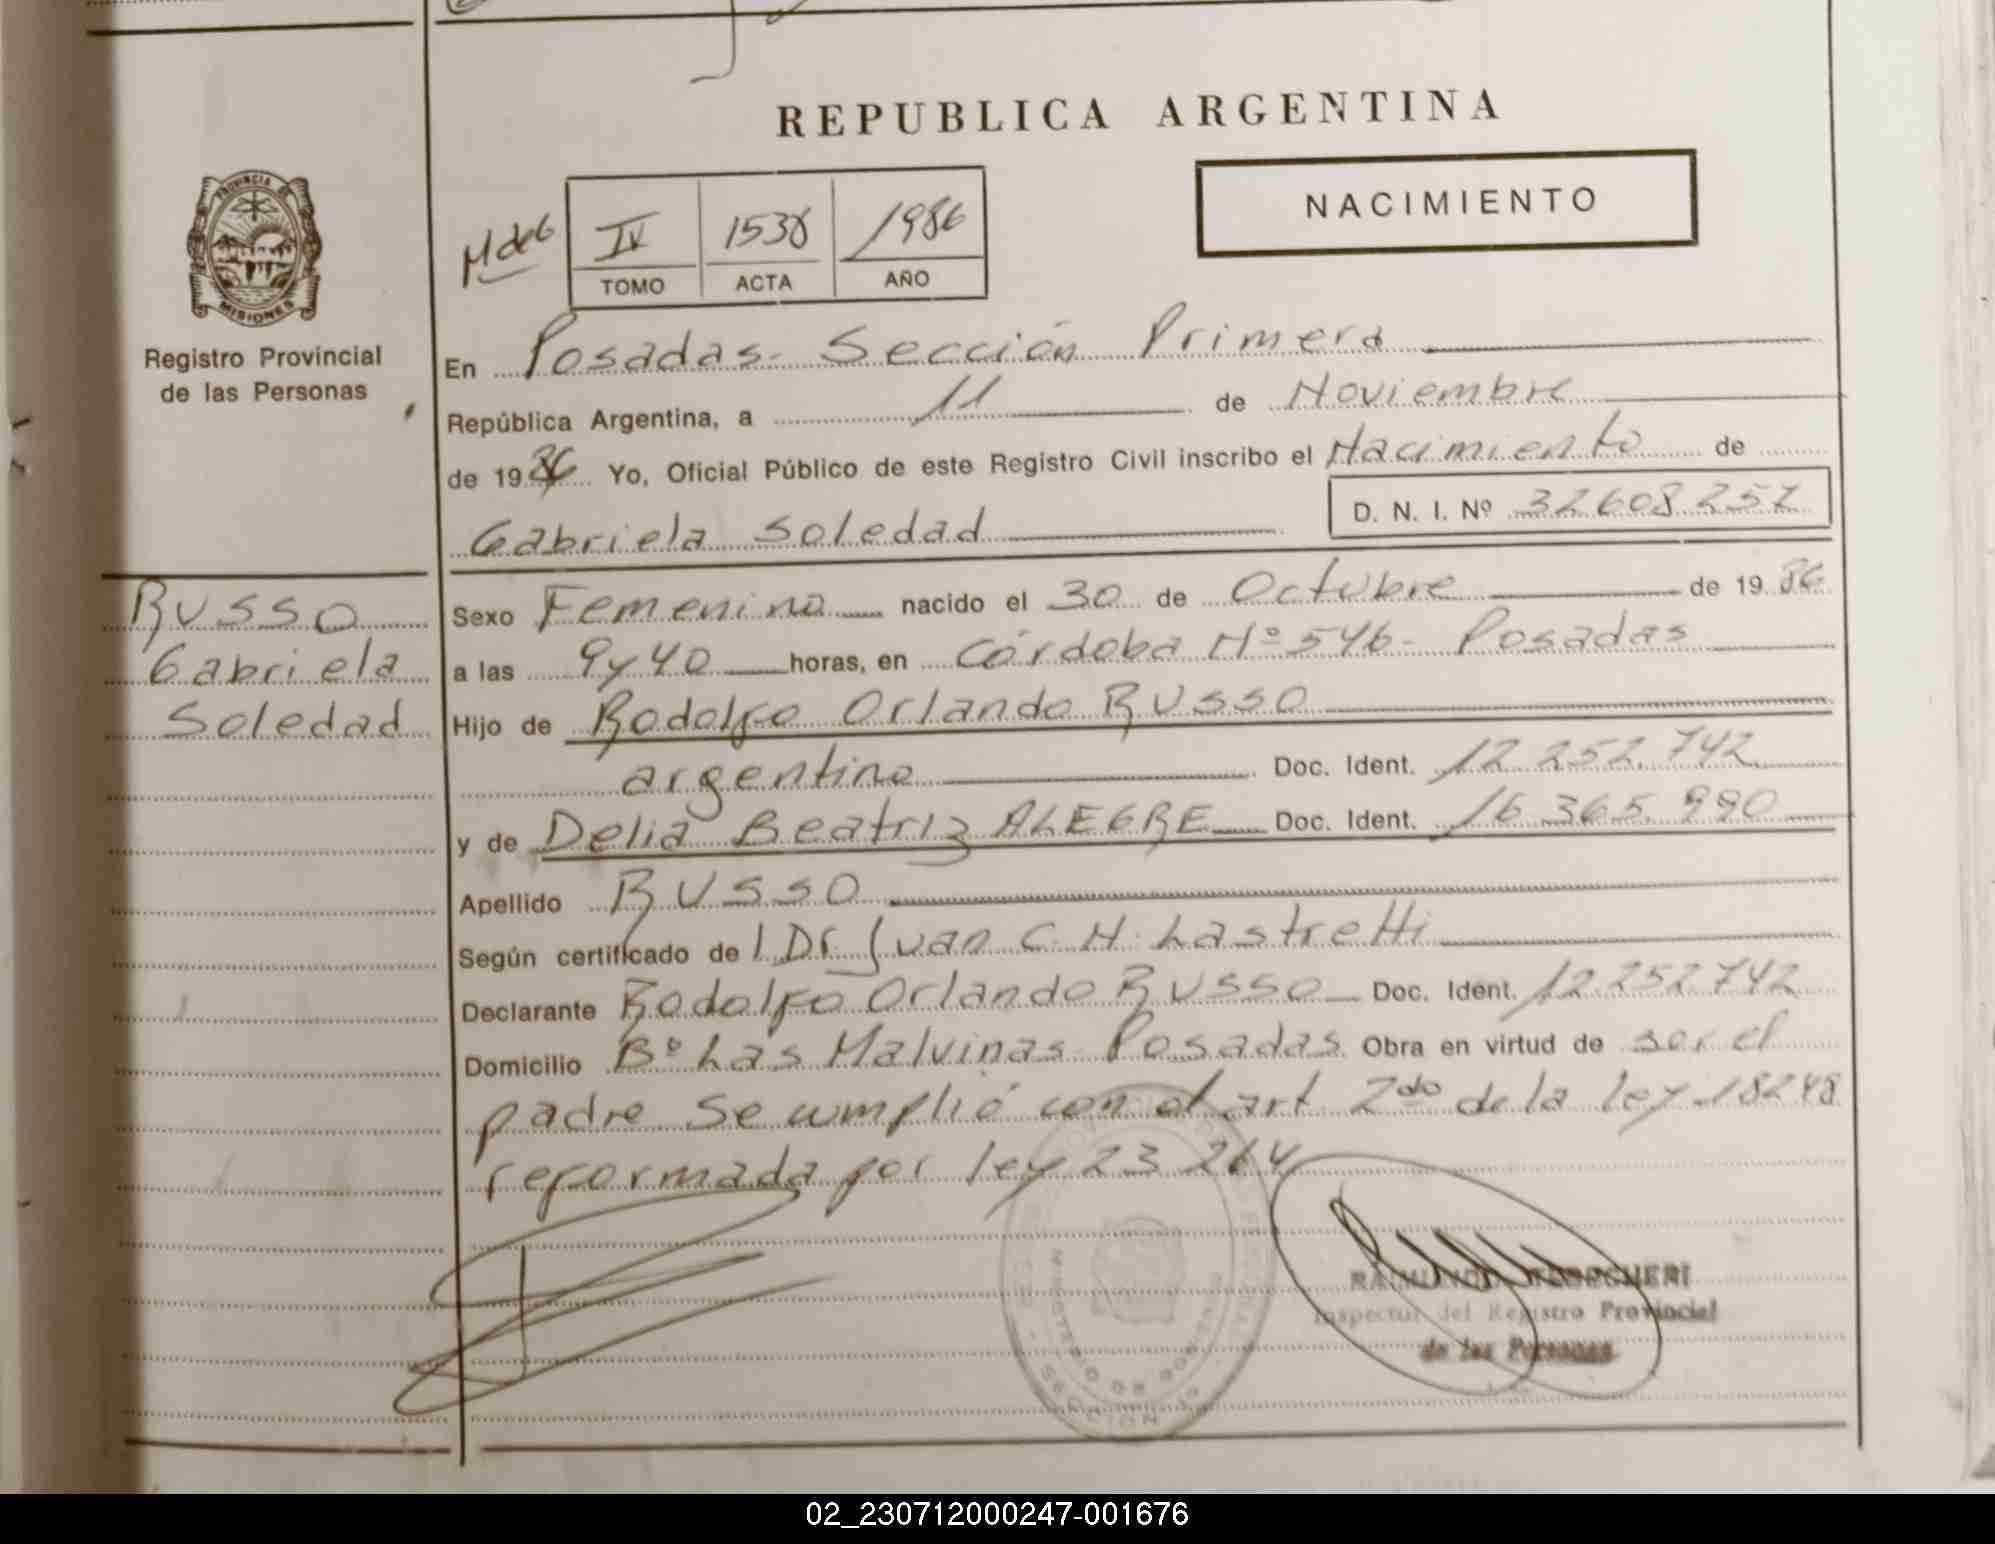 REPUBLICA ARGENTINA
NACIMIENTO
PROVINCIA DE
MISIONES
Registro Provincial
de las Personas
IV 1538 1986
TOMO ACTA AÑO
En Posadas - Sección Primera
República Argentina, a 11 de Noviembre
de 1986 Yo, Oficial Público de este Registro Civil inscribo el Nacimiento de
Gabriela Soledad D. N. I. Nº 32.608.257
RUSSO
Gabriela
Soledad
Sexo Femenino nacido el 30 de Octubre de 1986
a las 9 y 40 horas, en Córdoba Nº 546 - Posadas
Hijo de Rodolfo Orlando RUSSO
argentino Doc. Ident. 12.252.742
y de Delia Beatriz ALEGRE Doc. Ident. 16.365.990
Apellido RUSSO
Según certificado de l Dr. Juan C. H. Lastretti
Declarante Rodolfo Orlando RUSSO Doc. Ident. 12.252.742
Domicilio Bº Las Malvinas Posadas Obra en virtud de ser el
padre Se cumplió con el art 2do de la ley 18248
reformada por ley 23.264
MINISTERIO DE GOBIERNO
SECCION 1a
RAIMUNDO
Inspector del Registro Provincial
de las Personas
02_230712000247-001676